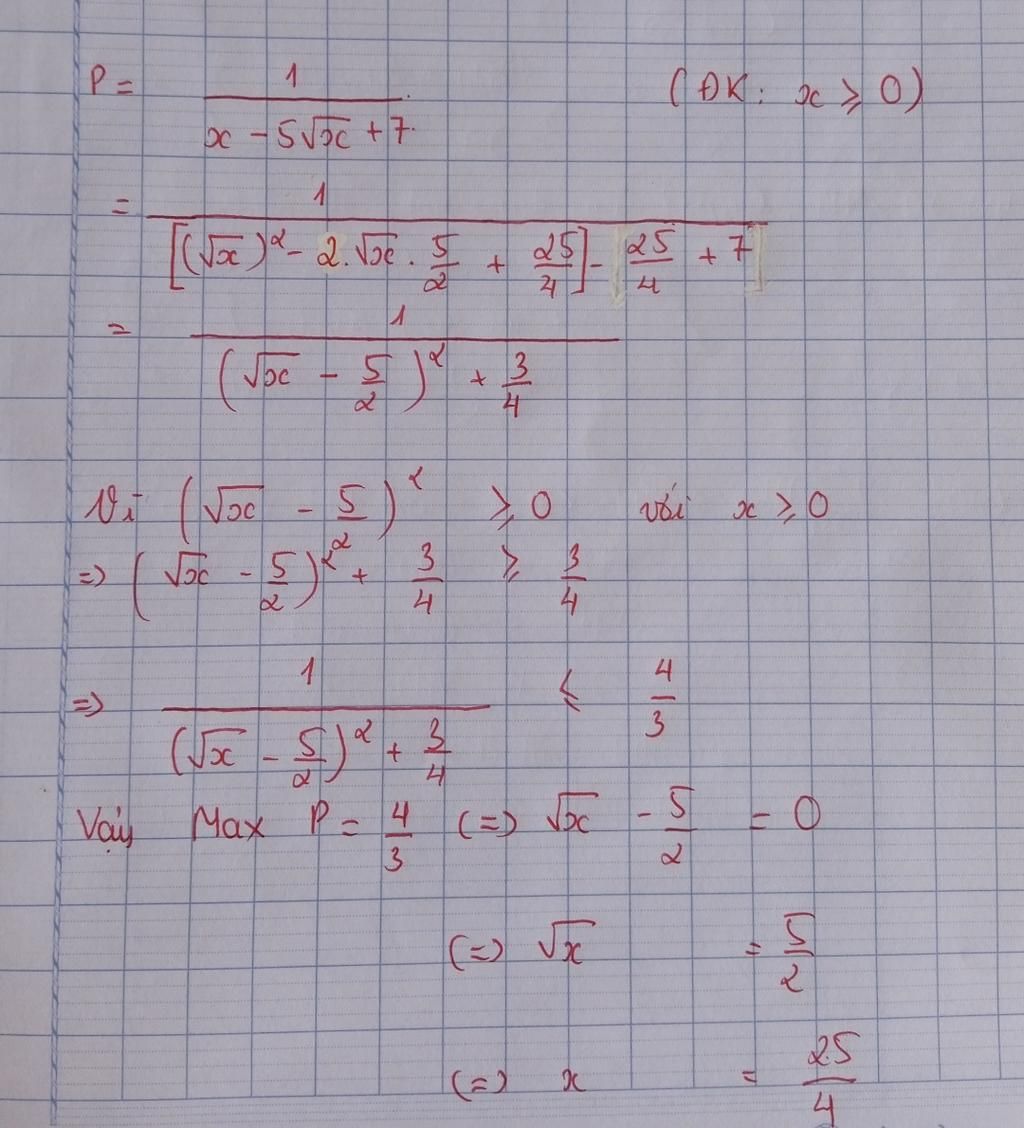 P = 1 / (x - 5√x + 7) (ĐK: x ≥ 0)
= 1 / ([(√x)² - 2.√x . 5/2 + 25/4] - [25/4 + 7])
= 1 / ((√x - 5/2)² + 3/4)
Vì (√x - 5/2)² ≥ 0 với x ≥ 0
=> (√x - 5/2)² + 3/4 ≥ 3/4
=> 1 / ((√x - 5/2)² + 3/4) ≤ 4/3
Vậy Max P = 4/3 (=) √x - 5/2 = 0
(=) √x = 5/2
(=) x = 25/4